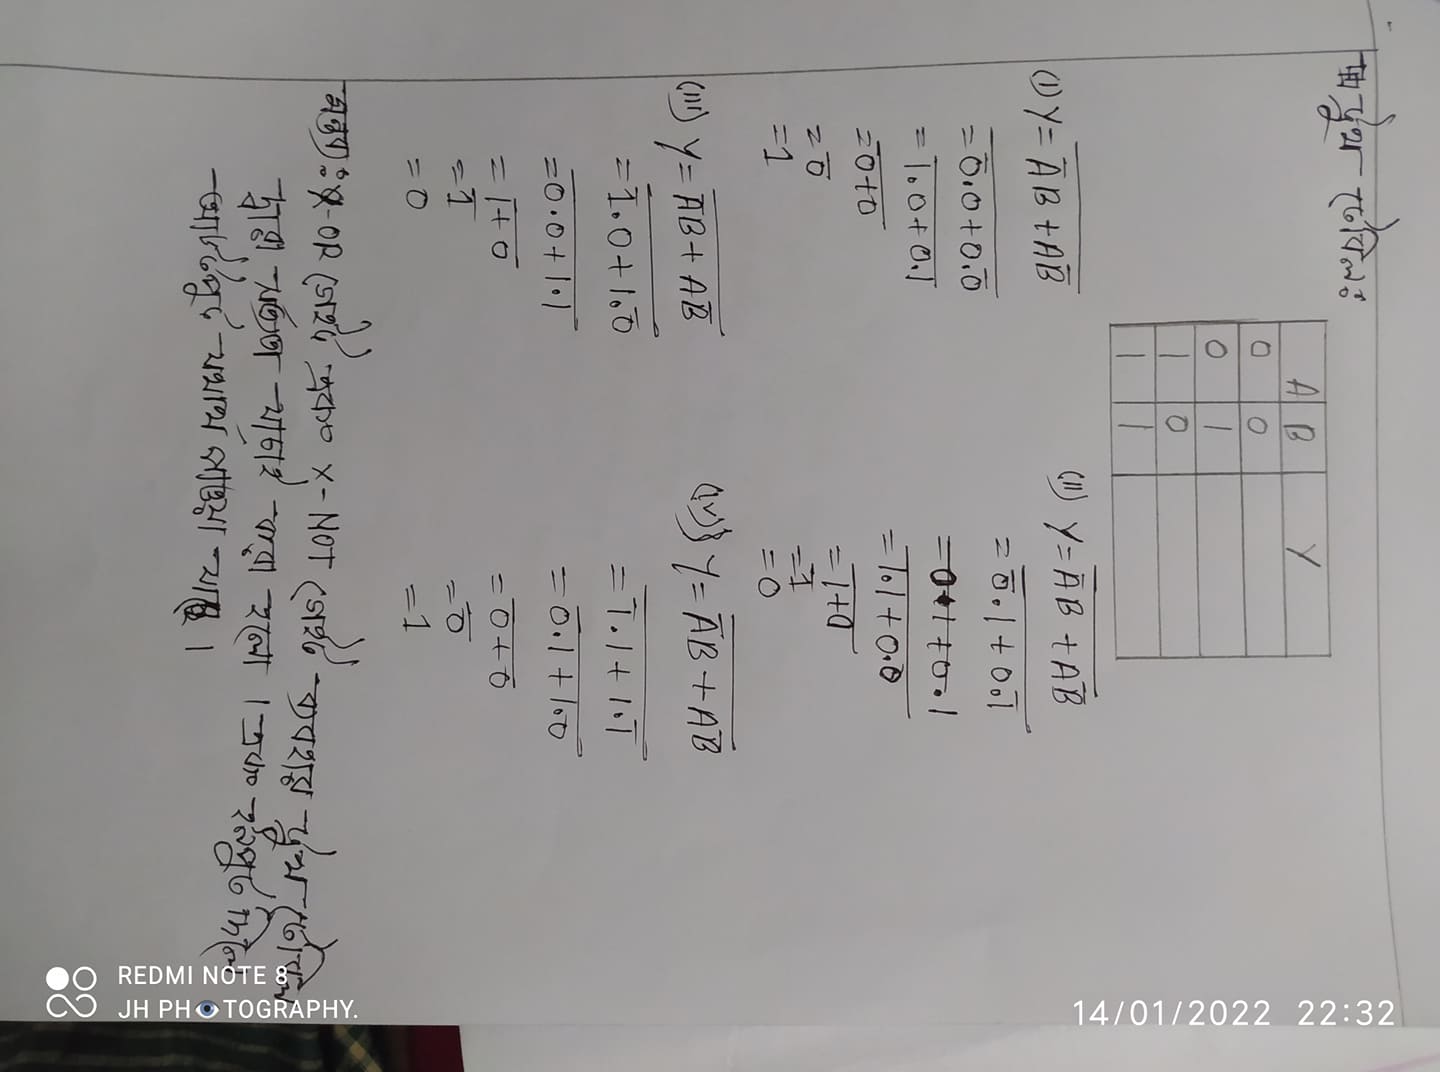 ট্রুথ টেবিলঃ
A B Y
0 0
0 1
1 0
1 1
(i) Y = \overline{\overline{A}B + A\overline{B}}
= \overline{\overline{0}.0 + 0.\overline{0}}
= \overline{1.0 + 0.1}
= \overline{0+0}
= \overline{0}
= 1
(ii) Y = \overline{\overline{A}B + A\overline{B}}
= \overline{\overline{0}.1 + 0.\overline{1}}
= \overline{1.1 + 0.0}
= \overline{1+0}
= \overline{1}
= 0
(iii) Y = \overline{\overline{A}B + A\overline{B}}
= \overline{\overline{1}.0 + 1.\overline{0}}
= \overline{0.0 + 1.1}
= \overline{1+0}
= \overline{1}
= 0
(iv) Y = \overline{\overline{A}B + A\overline{B}}
= \overline{\overline{1}.1 + 1.\overline{1}}
= \overline{0.1 + 1.0}
= \overline{0+0}
= \overline{0}
= 1
মন্তব্যঃ X-OR গেইট এবং X-NOT গেইট ব্যবহার ট্রুথ টেবিল
দ্বারা সত্যতা যাচাই করা হলো। এবং ইনপুট দিলে
আউটপুট সমান পাওয়া যায়।
REDMI NOTE 8
JH PHOTOGRAPHY.
14/01/2022 22:32